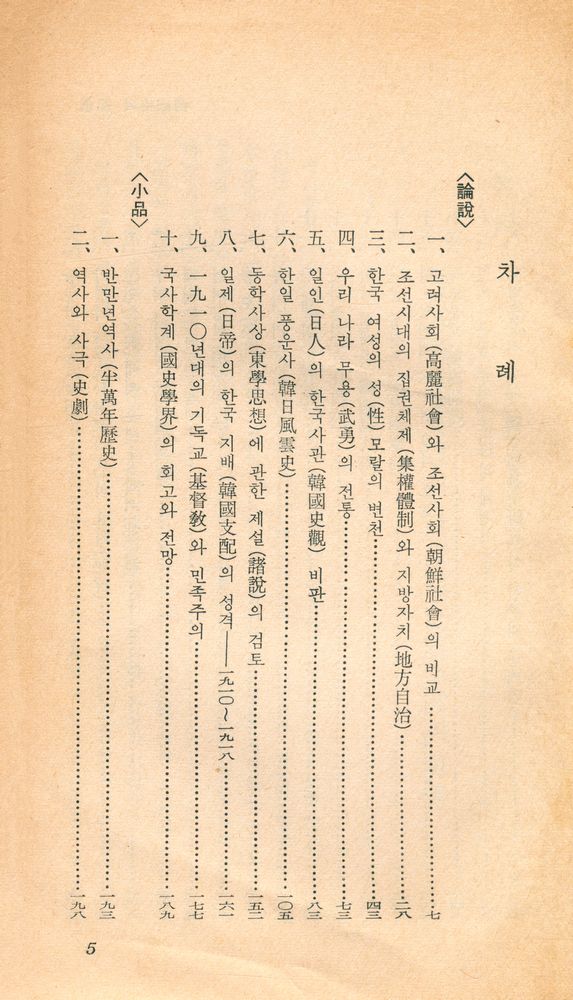 차 례
〈論說〉
一、 고려사회(高麗社會)와 조선사회(朝鮮社會)의 비교………七
二、 조선시대의 집권체제(集權體制)와 지방자치(地方自治)………二八
三、 한국 여성의 성(性)모랄의 변천………四三
四、 우리 나라 무용(武勇)의 전통………七三
五、 일인(日人)의 한국사관(韓國史觀) 비판………八三
六、 한일 풍운사(韓日風雲史)………一〇五
七、 동학사상(東學思想)에 관한 제설(諸說)의 검토………一五二
八、 일제(日帝)의 한국 지배(韓國支配)의 성격——一九一〇~一九一八………一六一
九、 一九一〇년대의 기독교(基督敎)와 민족주의………一七七
十、 국사학계(國史學界)의 회고와 전망………一八九
〈小品〉
一、 반만년역사(半萬年歷史)………一九三
二、 역사와 사극(史劇)………一九八
5